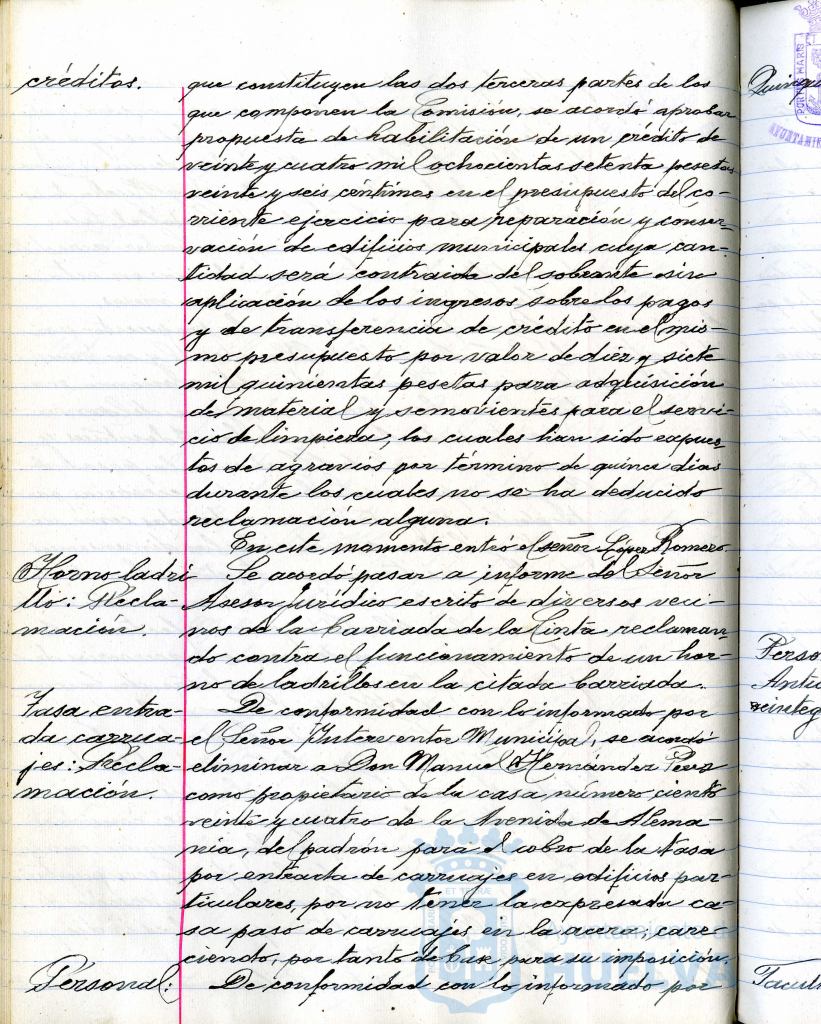 créditos.
que constituyen las dos terceras partes de los
que componen la Comisión, se acordó aprobar
propuesta de habilitación de un crédito de
veinte y cuatro mil ochocientas setenta pesetas
veinte y seis céntimos en el presupuesto del co-
rriente ejercicio para reparación y conser-
vación de edificios municipales cuya can-
tidad será contraida del sobrante sin
aplicación de los ingresos sobre los pagos
y de transferencia de crédito en el mis-
mo presupuesto por valor de diez y siete
mil quinientas pesetas para adquisición
de material y semovientes para el servi-
cio de limpieza, los cuales han sido expues-
tos de agravios por término de quince dias
durante los cuales no se ha deducido
reclamación alguna.
En este momento entró el señor López Romero.
Horno ladri
llo: Recla-
mación.
Se acordó pasar a informe del Señor
Asesor Jurídico escrito de diversos veci-
nos de la barriada de la Cinta reclaman-
do contra el funcionamiento de un hor-
no de ladrillos en la citada barriada.
Tasa entra-
da carrua-
jes: Recla-
mación.
De conformidad con lo informado por
el Señor Interventor Municipal, se acordó
eliminar a Don Manuel Hernández
como propietario de la casa número ciento
veinte y cuatro de la Avenida de Alema-
nia, del padrón para el cobro de la tasa
por entrada de carruajes en edificios par-
ticulares, por no tener la expresada ca-
sa paso de carruajes en la acera, care-
ciendo, por tanto de base para su imposición.
Personal:
De conformidad con lo informado por
Ayuntamiento de
HUELVA
Quinqu
Perso
Antic
reinteg
Facult